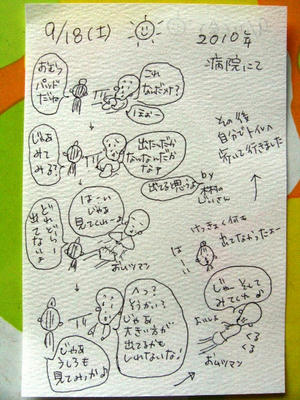 9/18(土)
2010年
病院にて
おむつ
パッドだね
これ
なんだい?
じゃあ
みて
みる?
出たんだか
なんなんだか
なあ
出てると思うよ
by
木村の
じいさん
はーい
じゃあ
見てくれーよ
どれどれー
出て
ないよ
おムツマン
へっ?
そうかい?
じゃあ
大きい方が
出てるかも
しれないな!
じゃあ
うしろも
見てみっかよ
じゃーそして
みてくれよ
おムツマン
くる
くる
けっきょく何も
出てなかったぁー
はーい
その後
自分でトイレへ
歩いて行きました